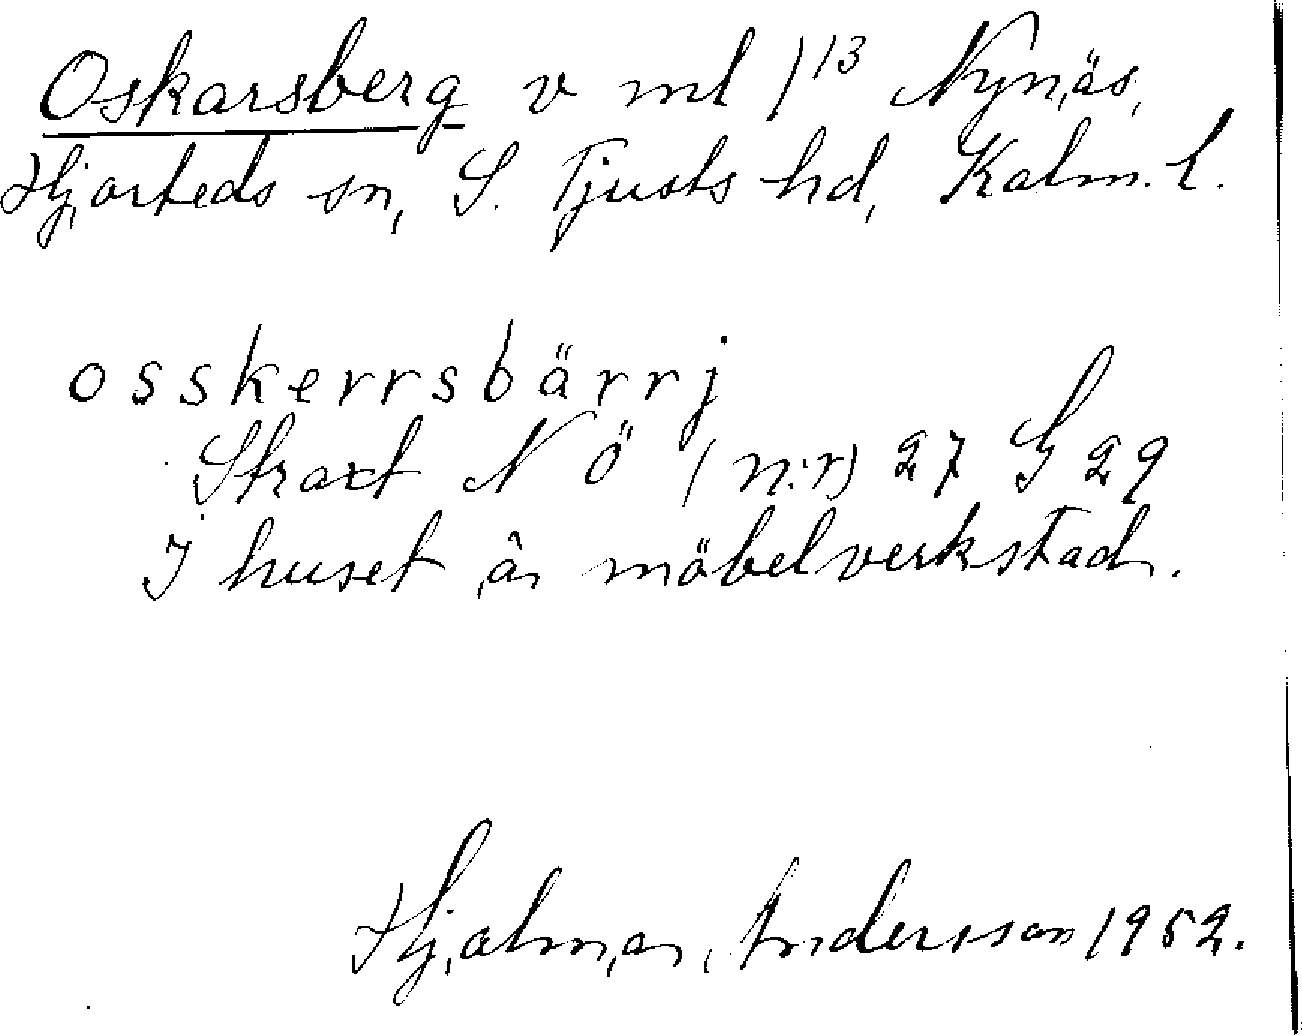 Oskarsberg v ml 1¹³ Nynäs,
Hjorteds sn, S. Tjusts hd, Kalm. l.
osskerrsbärrj
Straxt N Ö (n:r) 27 G 29
I huset är möbelverkstad.
Hjalmar Andersson 1952.